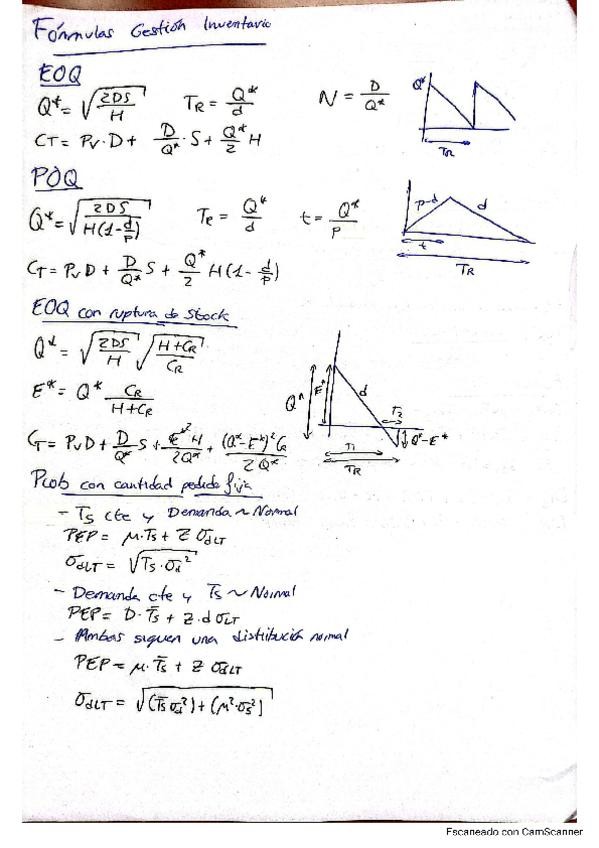 Fórmulas Gestión Inventario
EOQ
Q* = √(2DS/H)    TR = Q*/d    N = D/Q*
CT = Pv·D + D/Q*·S + Q*/2 H
Q*
TR
POQ
Q* = √(2DS/H(1-d/p))    TR = Q*/d    t = Q*/p
CT = PvD + D/Q* S + Q*/2 H(1 - d/p)
p-d    d
t
TR
EOQ con ruptura de stock
Q* = √(2DS/H) √(H+CR/CR)
E* = Q* CR/H+CR
CT = PvD + D/Q* S + E*² H/2Q* + (Q*-E*)² CR/2Q*
Q*    E*    d    T2
Q*-E*
T1
TR
Prob con cantidad pedido fija
- Ts cte y Demanda ~ Normal
PEP = μ·Ts + Z σdLT
σdLT = √(Ts·σd²)
- Demanda cte y T̄s ~ Normal
PEP = D·T̄s + Z·d σLT
- Ambas siguen una distribución normal
PEP = μ·T̄s + Z σdLT
σdLT = √((T̄s σd²) + (μ²·σs²))
Escaneado con CamScanner